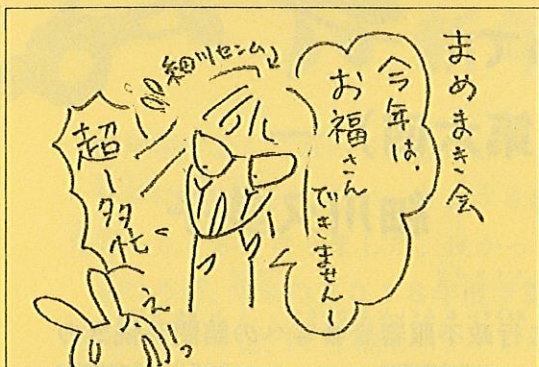 まめまき会
今年は、
お福さん
できません〜
細川センム
超ー多忙
えっ